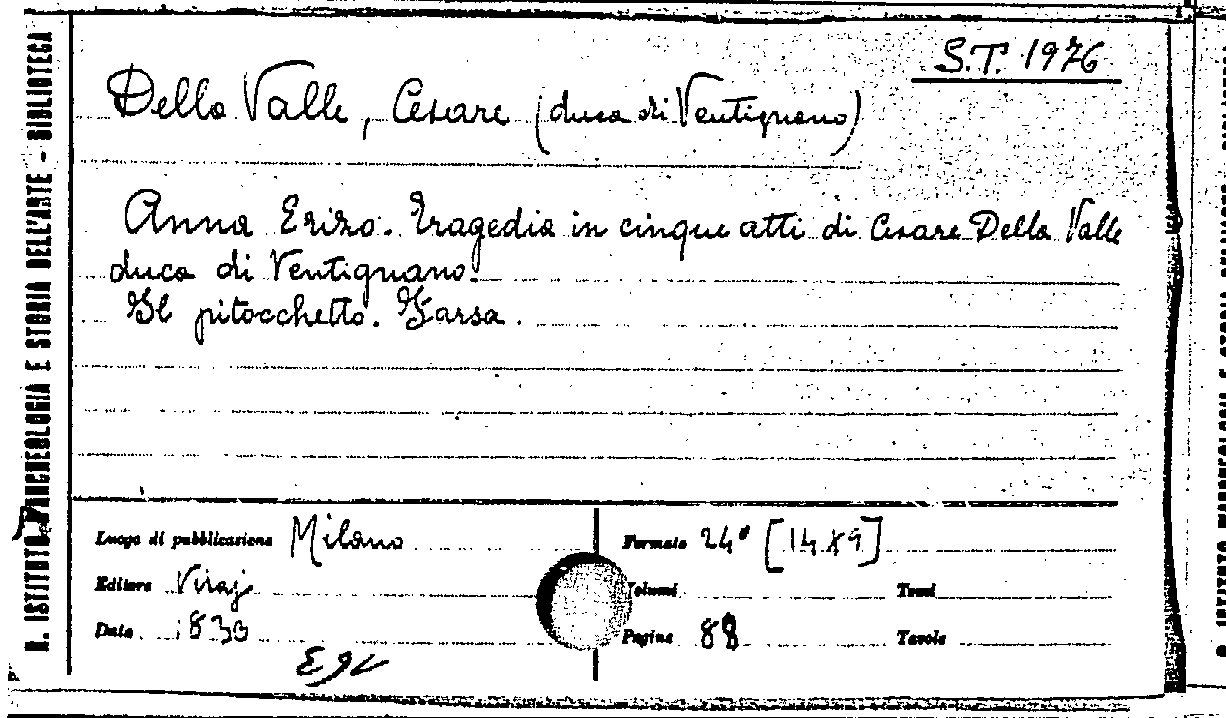 S.T. 1976
Della Valle, Cesare (duca di Ventignano)
Anna Erizo. Tragedia in cinque atti di Cesare Della Valle
duca di Ventignano.
Il pitocchetto. Farsa.
Luogo di pubblicazione Milano
Formato 24° [14x9]
Editore Viraj
Volumi
Tomi
Data 1830
Pagine 88
Tavole
R. ISTITUTO D'ARCHEOLOGIA E STORIA DELL'ARTE - BIBLIOTECA